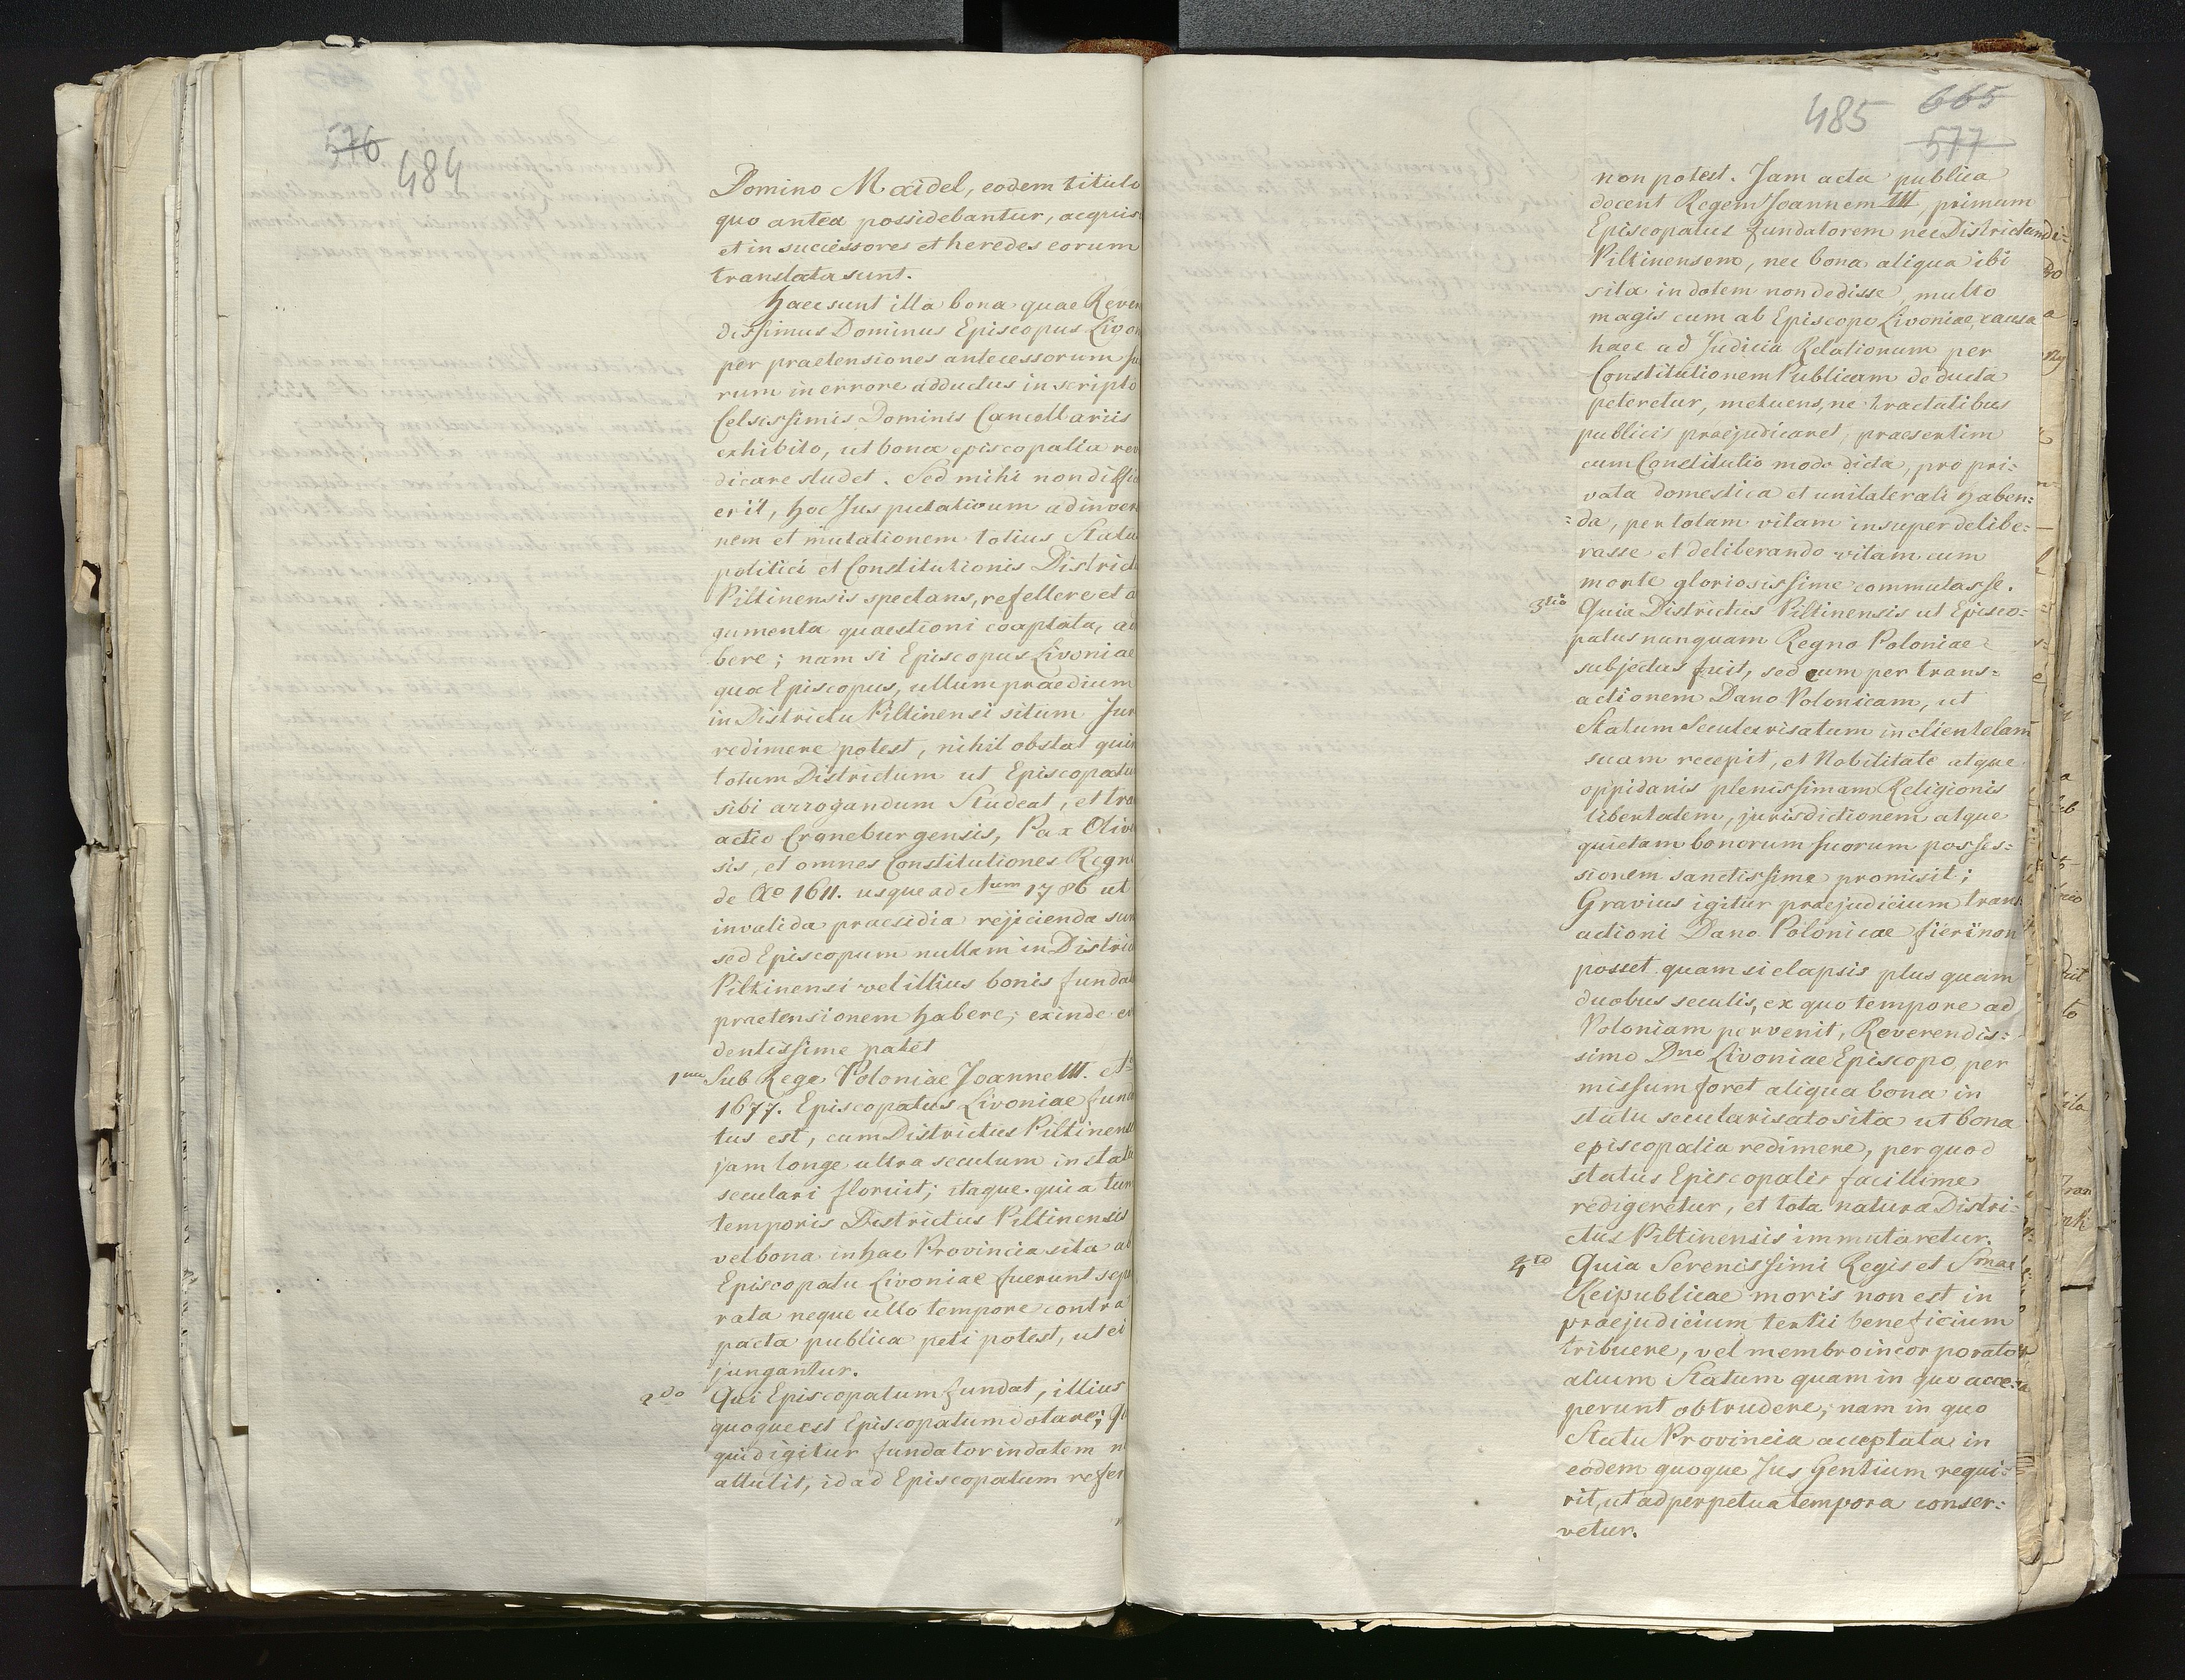 576
484
Domino Maidel, eodem titulo
quo antea possidebantur, acquis
et in successores et heredes eorum
translata sunt.
Haec sunt illa bona quae Reven
dissimus Dominus Episcopus Livon
per praetensiones antecessorum su
rum in errore adductus in scripto
Celsissimis Dominis Cancellariis
exhibito, ut bona episcopalia rev
dicare studet. Sed mihi non diffic
erit, hoc Jus putativum ad inver
nem et mutationem totius Statu
politici et Constitutionis District
Piltinensis spectans, refellere et a
gumenta quaestioni coaptata, ad
bere; nam si Episcopus Livoniae
qua Episcopus, ullum praedium
in Districtu Piltinensi situm Jur
redimere potest, nihil obstat quin
totum Districtum ut Episcopatu
sibi arrogandum Studeat, et tra
actio Craneburgensis, Pax Olive
sis, et omnes Constitutiones Regni
de Ao 1611. usque ad Aum 1786 ut
invalida praesidia rejicienda sun
sed Episcopum nullam in Distric
Piltinensi vel illius bonis funda
praetensionem habere; exinde e
dentissime patet
1mo Sub Rege Poloniae Joanne III. Ao
1677. Episcopatus Livoniae fund
tus est, cum Districtus Piltinens
jam longe ultra seculum in statu
seculari floruit; itaque quia tum
temporis Districtus Piltinensis
vel bona in hac Provincia sita ab
Episcopatu Livoniae fuerunt sepa
rata neque ullo tempore contra
pacta publica peti potest, ut ei
jungantur.
2do Qui Episcopatum fundat, illius
quoque est Episcopatum dotare; Q
quid igitur fundator in dotem n
attulit, id ad Episcopatum refer
485 665
577
non potest. Jam acta publica
docent Regem Joannem III primum
Episcopatus fundatorem nec Districtum
Piltinensem, nec bona aliqua ibi
sita in dotem non dedisse, multo
magis cum ab Episcopo Livoniae, causa
haec ad Judicia Relationum per
Constitutionem Publicam deducta
peteretur, metuens, ne tractatibus
publicis praejudicaret, praesertim
cum Constitutio modo dicta, pro pri=
vata domestica et unilaterali haben=
=da, per totam vitam insuper delibe=
rasse et deliberando vitam cum
morte gloriosissime commutasse.
3tio Quia Districtus Piltinensis ut Episco=
patus nunquam Regno Poloniae
subjectus fuit, sed eum per trans=
actionem Dano Polonicam, ut
Statum Secularisatum in clientelam
suam recepit, et Nobilitate atque
oppidanis plenissimam Religionis
libertatem, jurisdictionem atque
quietam bonorum suorum posses=
sionem sanctissime promisit;
Gravius igitur praejudicium trans=
actioni Dano Polonicae fieri non
posset quam si elapsis plus quam
duobus seculis, ex quo tempore ad
Poloniam pervenit, Reverendis=
simo Dno Livoniae Episcopo per
missum foret aliqua bona in
statu secularisato sita ut bona
episcopalia redimere, per quod
status Episcopalis facillime
redigeretur, et tota natura Distri=
ctus Piltinensis immutaretur.
4to Quia Serenissimi Regis et Smae
Reipublicae moris non est in
praejudicium tertii beneficium
tribuere, vel membro incorporato
alium Statum quam in quo acce=
perunt obtrudere; nam in quo
Statu Provincia acceptata in
eodem quoque Jus Gentium requi=
rit, ut ad perpetua tempora conser=
vetur.